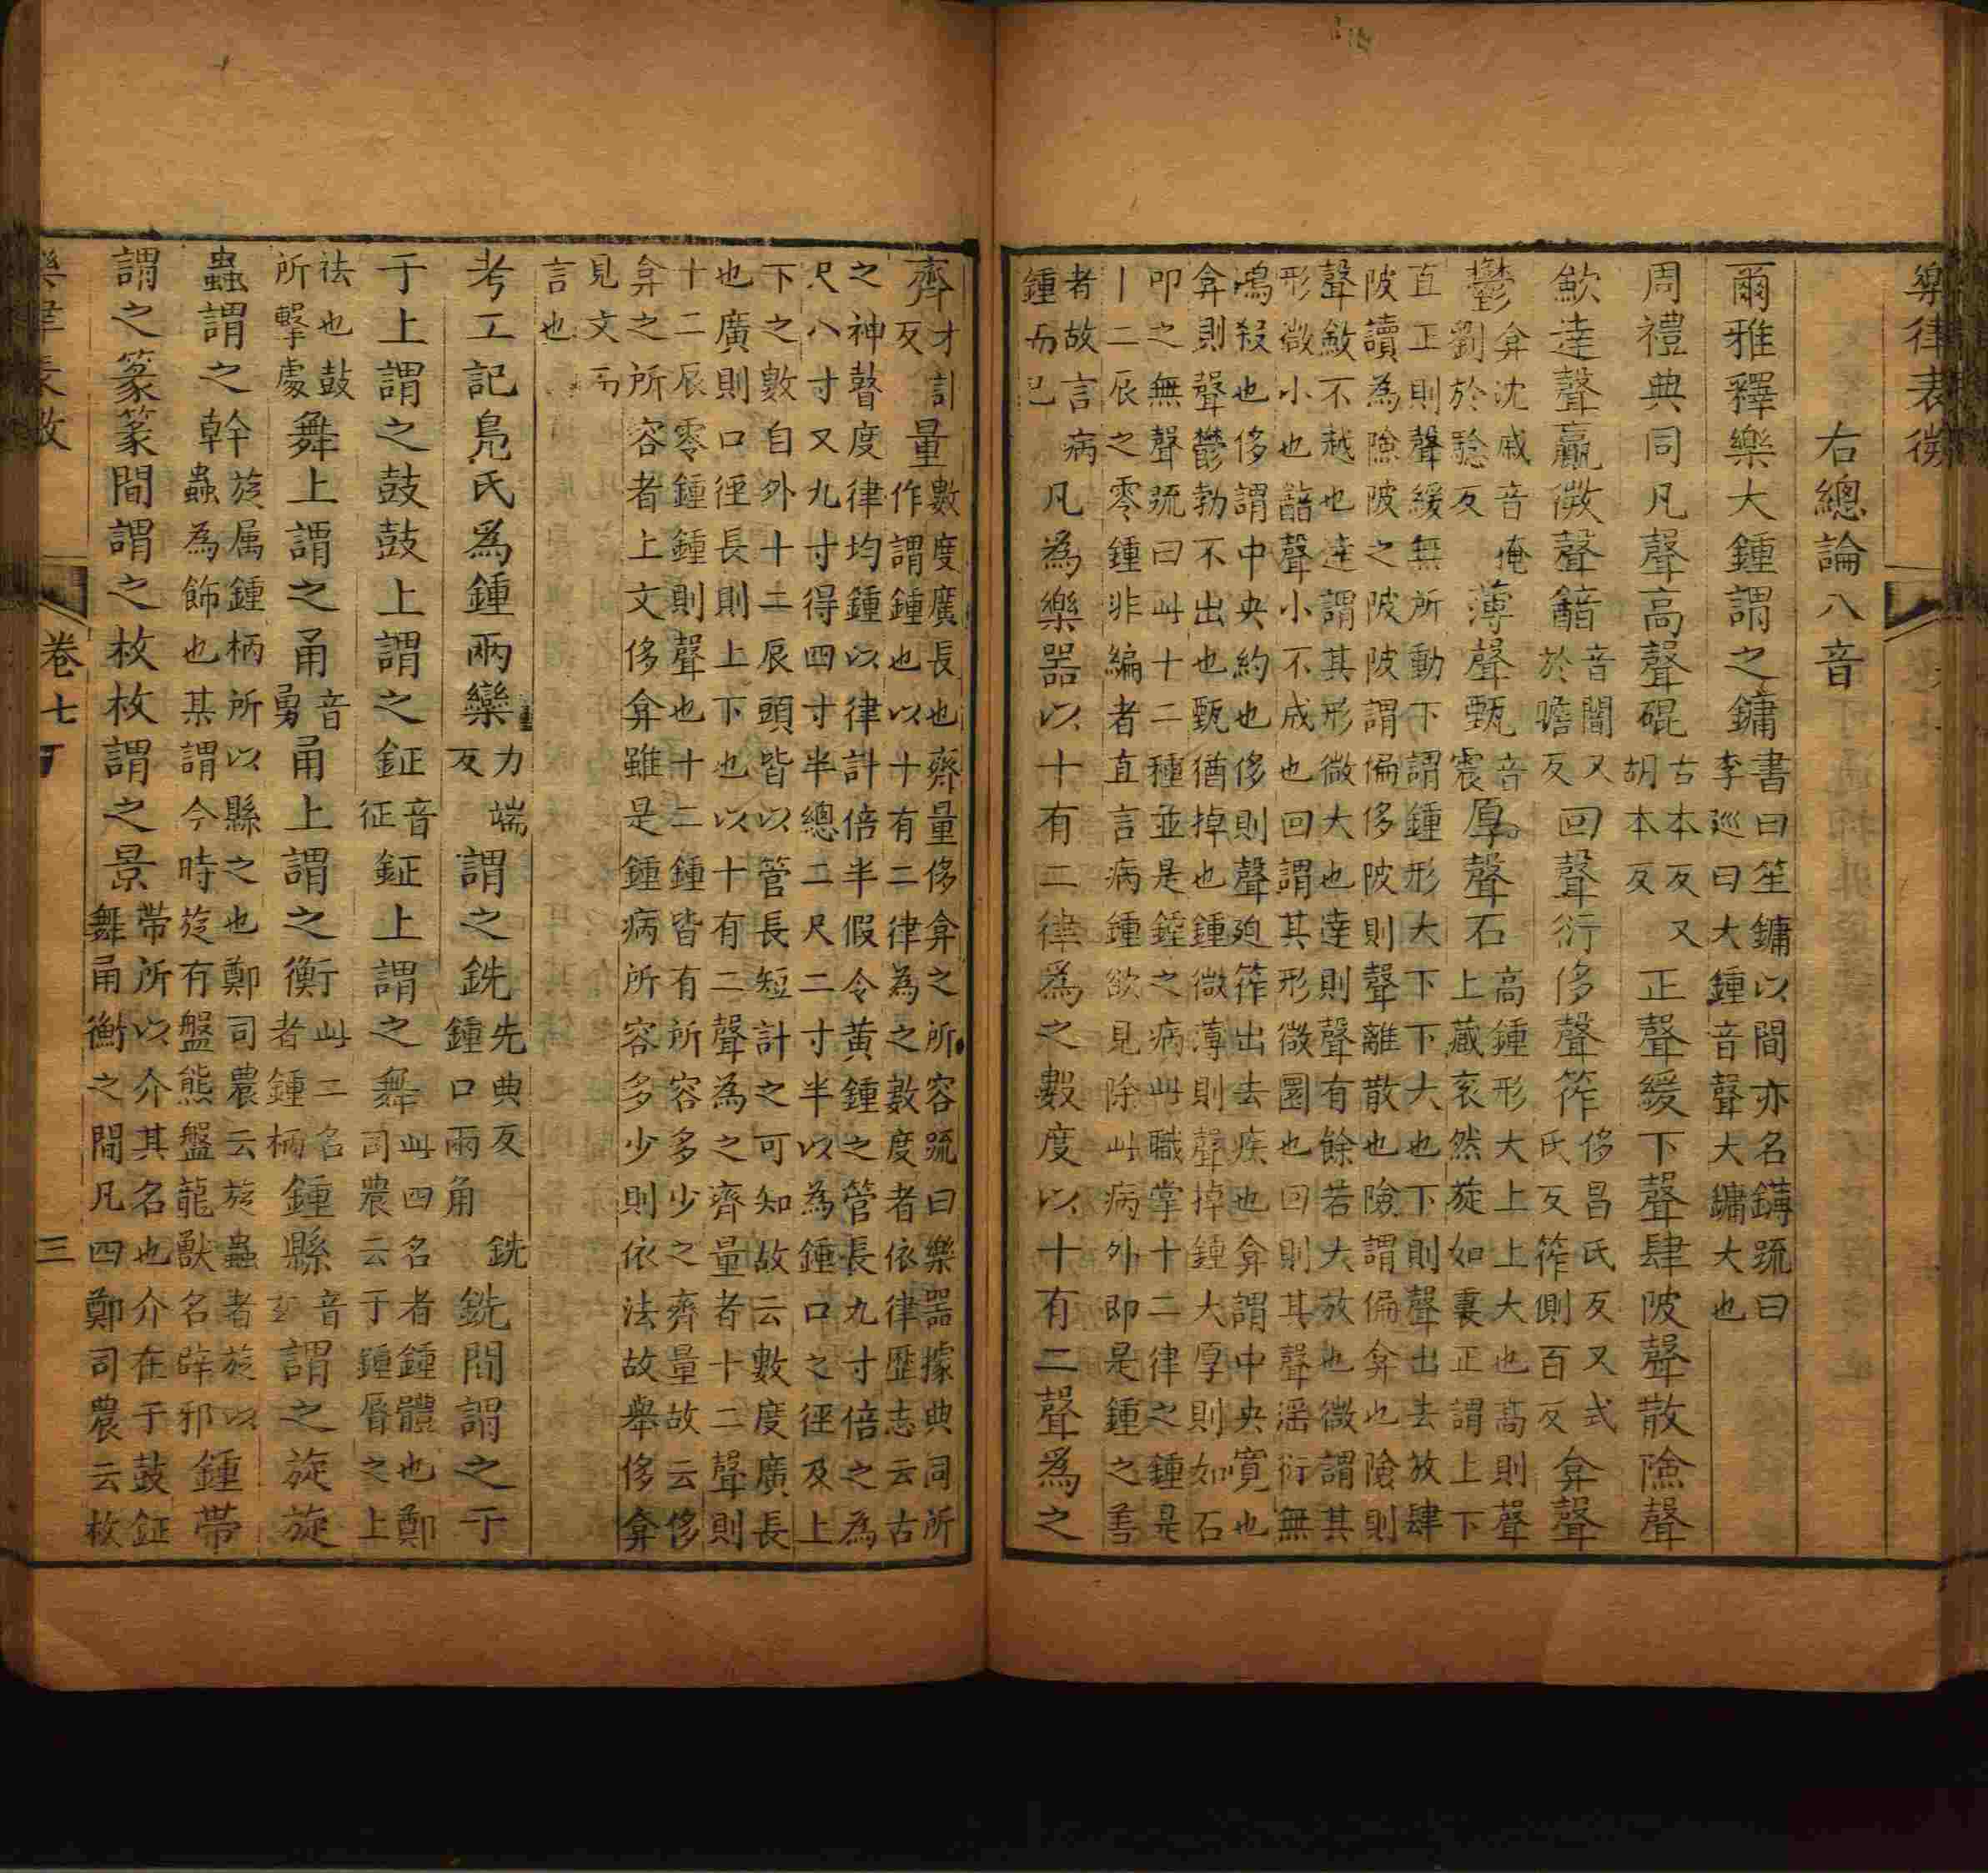 樂律表微
右總論八音
爾雅釋樂大鍾謂之鏞書曰笙鏞以間亦名鑮疏曰李巡曰大鍾音聲大鏞大也
周禮典同凡聲高聲䃂古本反又胡本反正聲緩下聲肆陂聲散險聲
歛達聲贏微聲韽音闇又於瞻反回聲衍侈聲筰侈昌氏反又式氏反筰側百反弇聲
鬱弇沈戚音掩劉於驗反薄聲甄音震厚聲石高鍾形大上上大也高則聲上藏衮然旋如裏正謂上下
直正則聲緩無所動下謂鍾形大下下大也下則聲出去放肆
陂讀為險陂之陂陂謂偏侈陂則聲離散也險謂偏弇也險則
聲斂不越也達謂其形微大也達則聲有餘若大放也微謂其
形微小也韽聲小不成也回謂其形微圜也回則其聲淫衍無
鴻殺也侈謂中央約也侈則聲迫筰出去疾也弇謂中央寬也
弇則聲鬱勃不出也甄猶掉也鍾微薄則聲掉鍾大厚則如石
叩之無聲疏曰此十二種並是鍾之病此職掌十二律之鍾是
十二辰之零鍾非編者直言病鍾欲見除此病外即是鍾之善
者故言病鍾而已凡為樂器以十有二律爲之數度以十有二聲爲之
齊才計反量數度廣長也齊量侈弇之所容疏曰樂器據典同所作謂鍾也以十有二律為之數度者依律歷志云古
之神瞽度律均鍾以律計倍半假令黄鍾之管長九寸倍之為
尺八寸又九寸得四寸半總二尺二寸半以為鍾口之徑及上
下之數自外十二辰頭皆以管長短計之可知故云數度廣長
也廣則口徑長則上下也以十有二聲為之齊量者十二聲則
十二辰零鍾鍾則聲也十二鍾皆有所容多少之齊量故云侈
弇之所容者上文侈弇雖是鍾病所容多少則依法故舉侈弇
見文而
言也
考工記鳧氏爲鍾兩欒力端反謂之銑先典反銑鍾口兩角銑間謂之于
于上謂之鼓鼓上謂之鉦音征鉦上謂之舞此四名者鍾體也鄭司農云于鍾脣之上
袪也鼓所擊處舞上謂之甬音勇甬上謂之衡此二名者鍾柄鍾縣音玄謂之旋旋
蟲謂之幹旋属鍾柄所以縣之也鄭司農云旋蟲者旋以蟲為飾也某謂今時旋有盤熊盤龍獸名辟邪鍾帶
謂之篆篆間謂之枚枚謂之景帶所以介其名也介在于鼓鉦舞甬衡之間凡四鄭司農云枚
樂律表微 卷七下 三